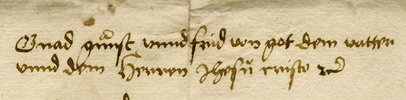 Gnad gunst vnnd frid von got dem vatter
vnnd dem Herren Jhesu cristo